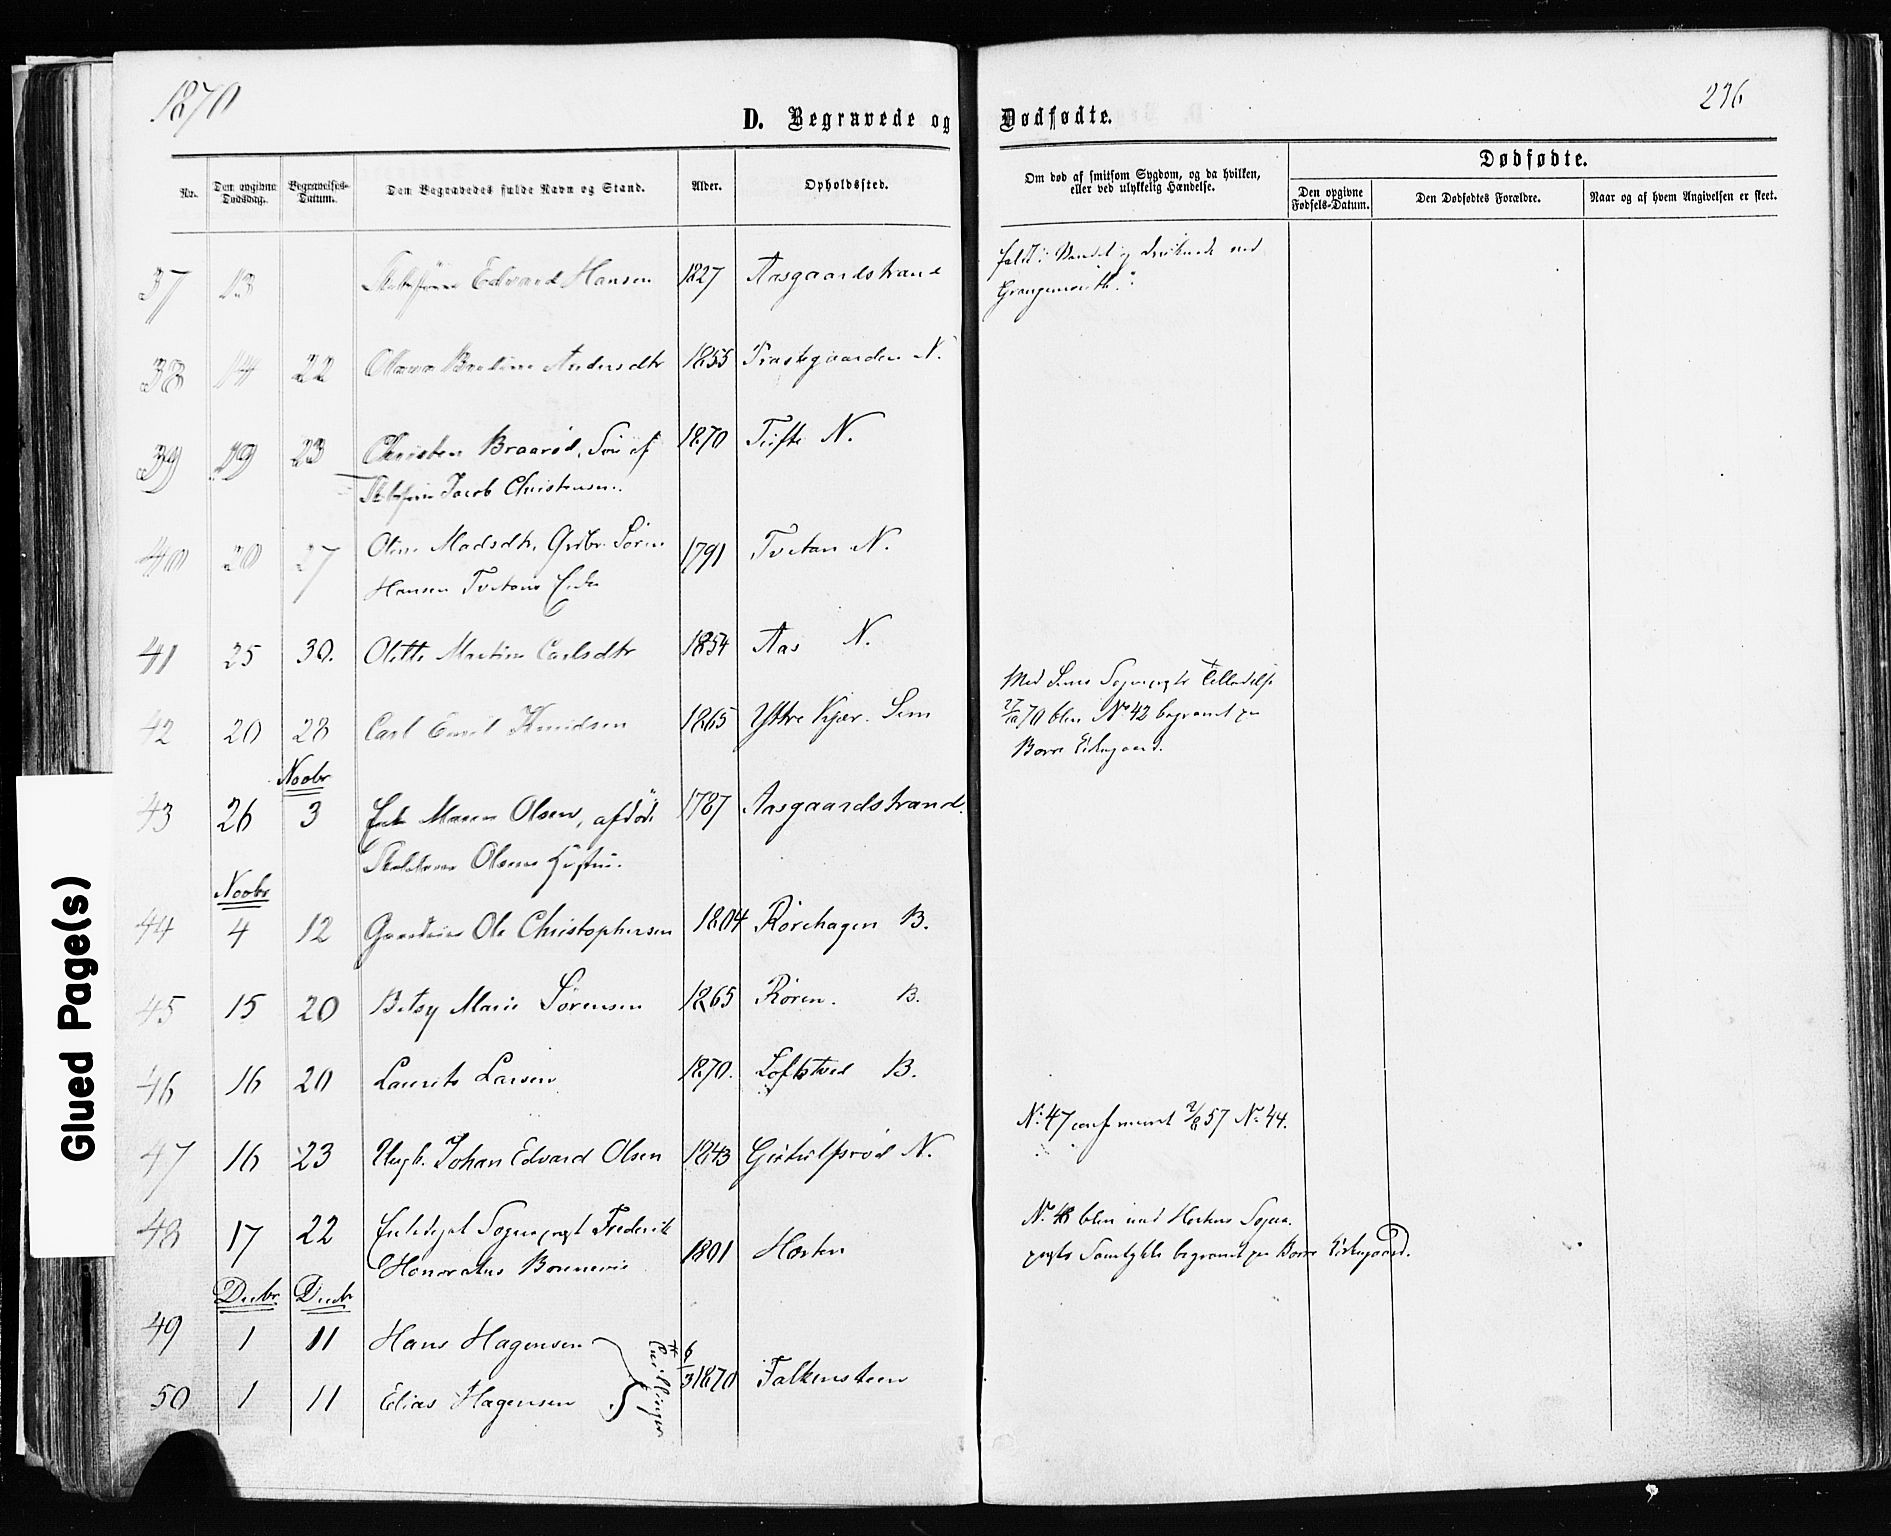 1870
236
D. Begravede og Dødfødte.
Nr.
Den opgivne Dødsdag.
Begravelses-Datum.
Den Begravedes fulde Navn og Stand.
Alder.
Opholdssted.
Om død af smitsom Sygdom, og da hvilken,
eller ved ulykkelig Hændelse.
Dødfødte.
Den opgivne Fødsels-Datum.
Den Dødfødtes Forældre.
Naar og af hvem Angivelsen er skeet.
37 13 Edvard Hansen 1827 Aasgaardstrand
faldt i Vandet og druknede ved
Grangemouth.
38 14 22 Andersdtr 1855 Præstegaarden N.
39 19 23 Christen Braarød, Søn af 1870 Tufte N.
Jacob Christensen.
40 20 27 Oline Madsdtr, Søren 1791 Tvetan N.
Hansen Tvetans Enke
41 25 30. Olette Martine Carlsdtr 1854 Aas N.
42 20 28 Carl Emil Knudsen 1865 Yttre Kjær. Sem
Med Sems Sogneprsts Tilladelse
27/10 70 blev No 42 begravet paa
Borre Kirkegaard.
Novbr
43 26 3 Enke Maren Olsen, afdøde 1787 Aasgaardstrand.
Olsens Hustru.
Novbr
44 4 12 Gaardmd Ole Christophersen 1804 Rørehagen B.
45 15 20 Betsy Marie Sørensen 1865 Røren. B.
46 16 20 Laurits Larsen 1870. Loftstved B.
47 16 23 Ungk. Johan Edvard Olsen 1843 N.
N. 47 confirmeret 57 N. 44.
48 17 22 Sogneprst Frederik
Honoratus Bonnevie 1801 Horten
N. 48 blev med Hortens Sogne-
prsts Samtykke begravet paa Borre Kirkegaard.
Decbr Decbr
49 1 11 Hans Hagensen
Tvillinger
6/3 1870 Falkensteen
50 1 11 Elias Hagensen
Glued Page(s)